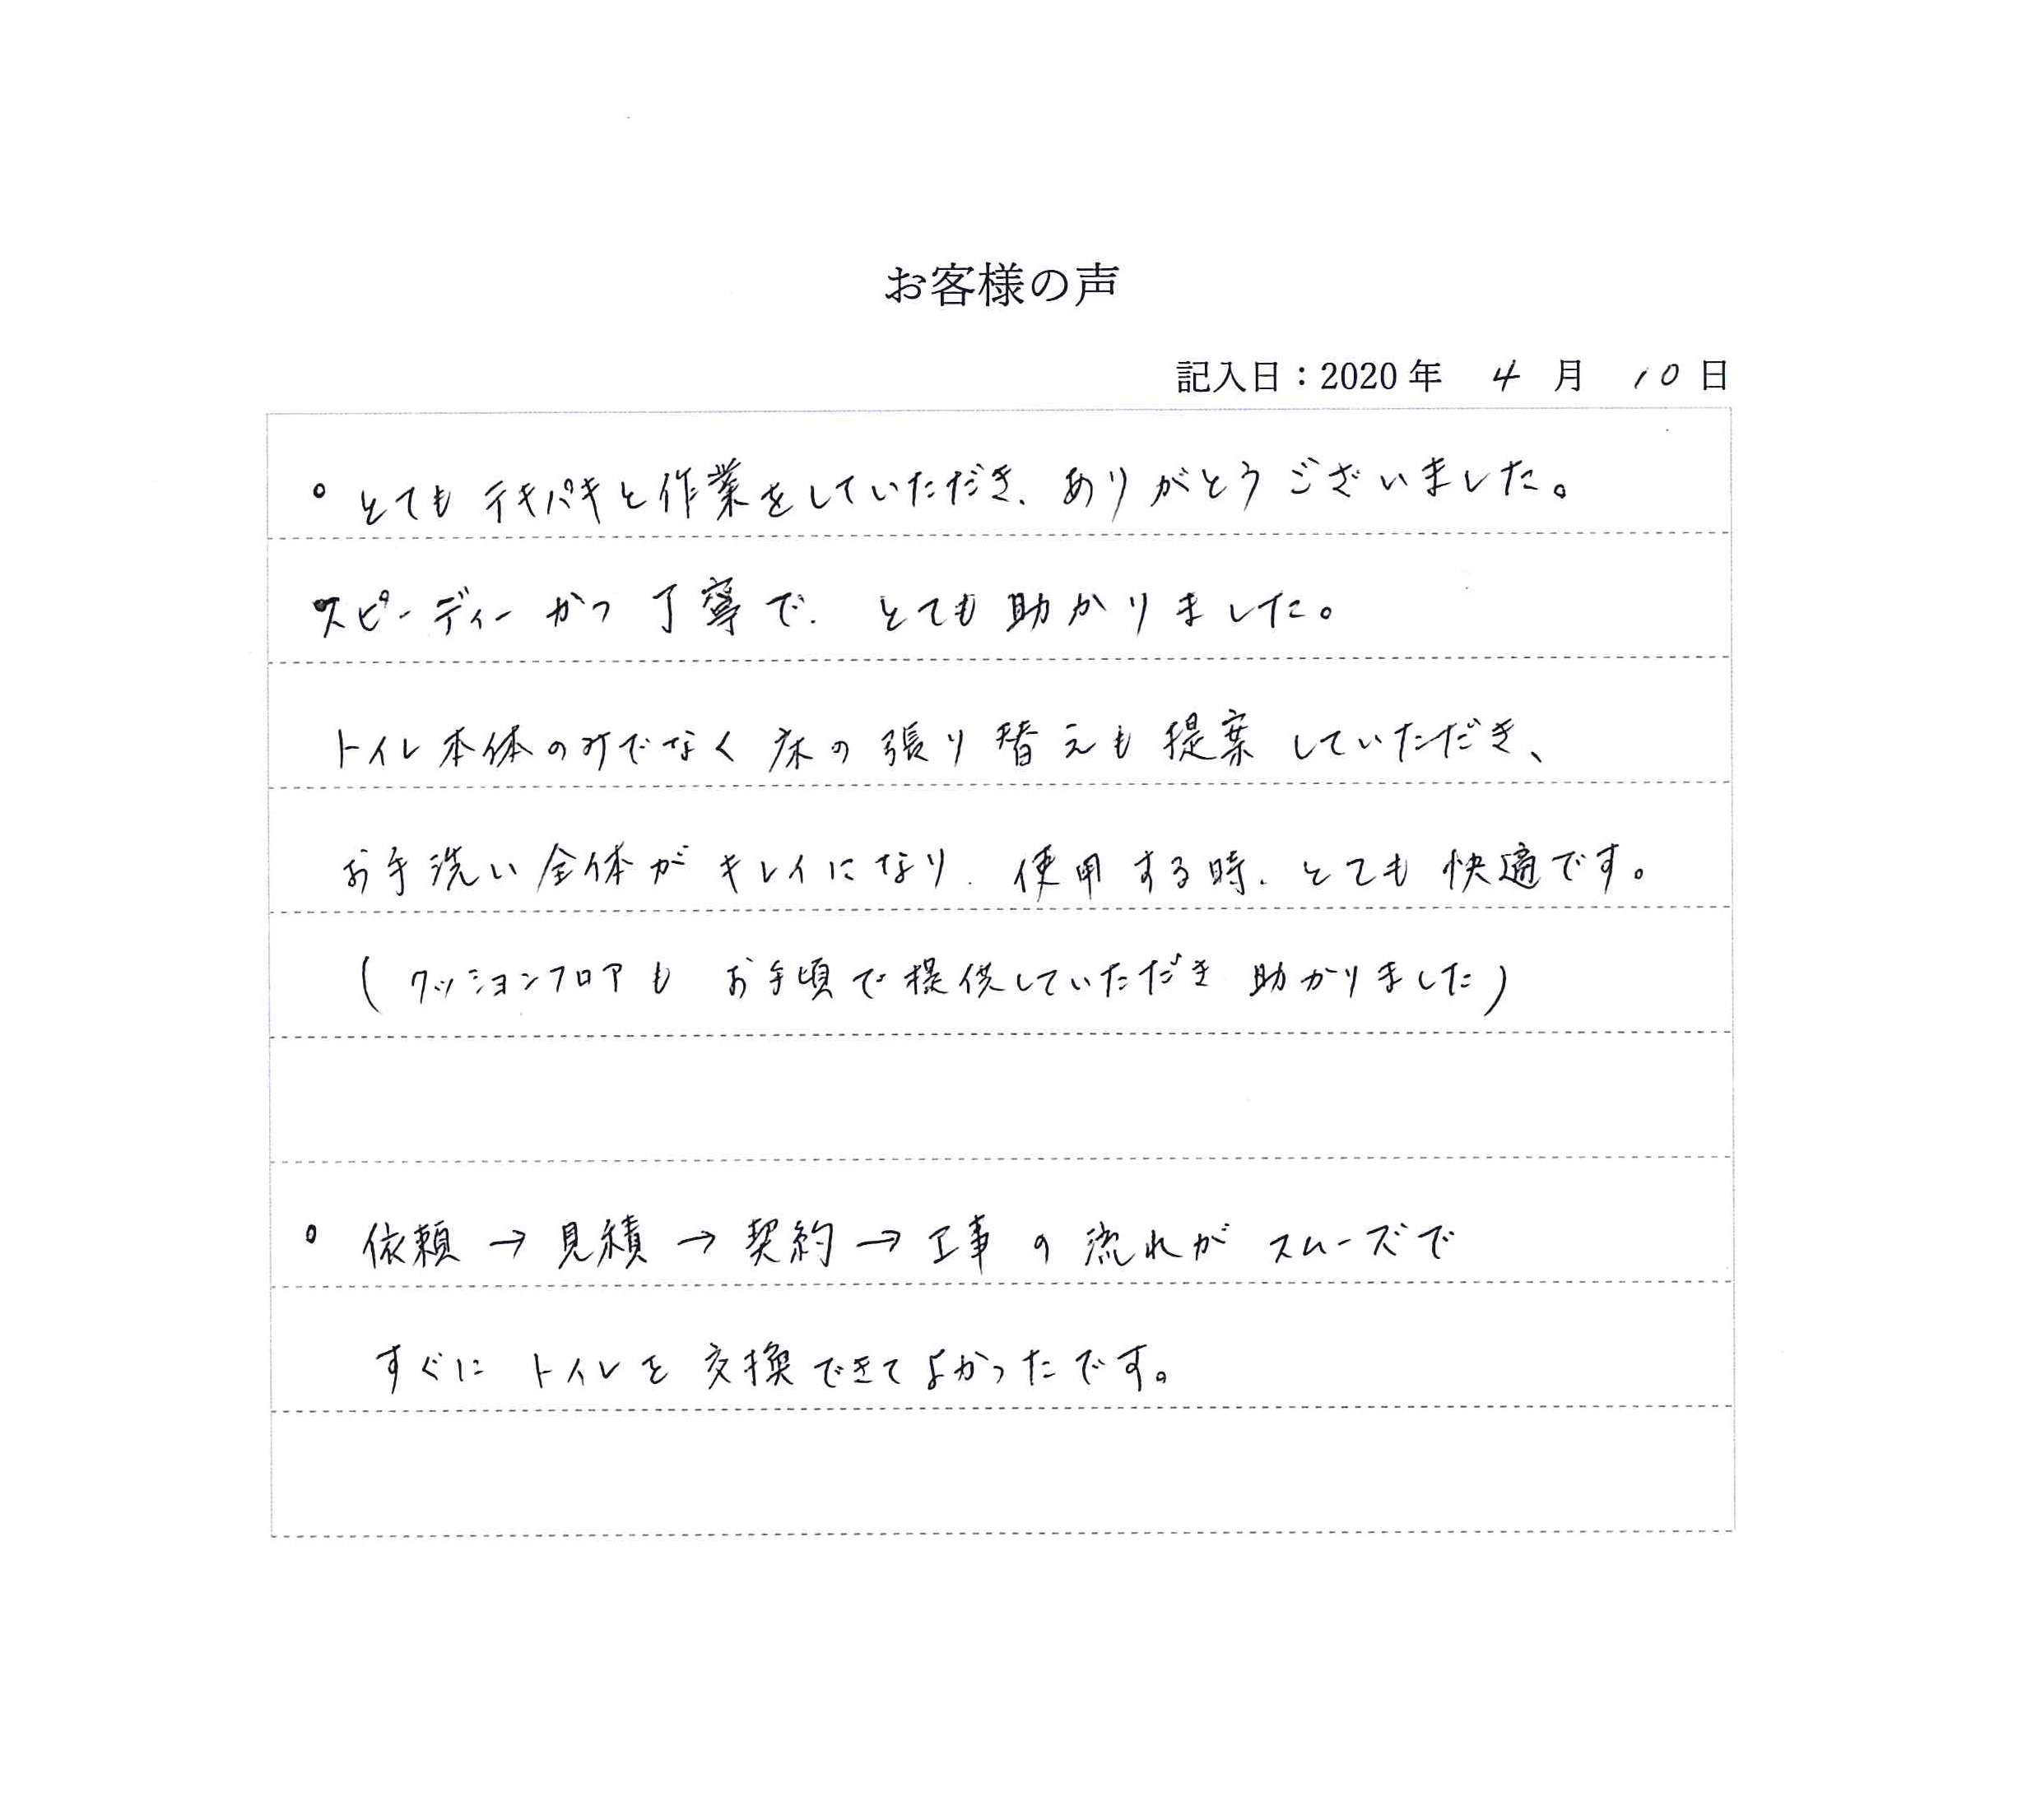 お客様の声
記入日：2020年 4 月 10 日
。とてもテキパキと作業をしていただき、ありがとうございました。
スピーディーかつ丁寧で、とても助かりました。
トイレ本体のみでなく床の張り替えも提案していただき、
お手洗い全体がキレイになり、使用する時、とても快適です。
(クッションフロアも お手頃で提供していただき助かりました)
。依頼→見積→契約→工事の流れがスムーズで
すぐにトイレを交換できてよかったです。